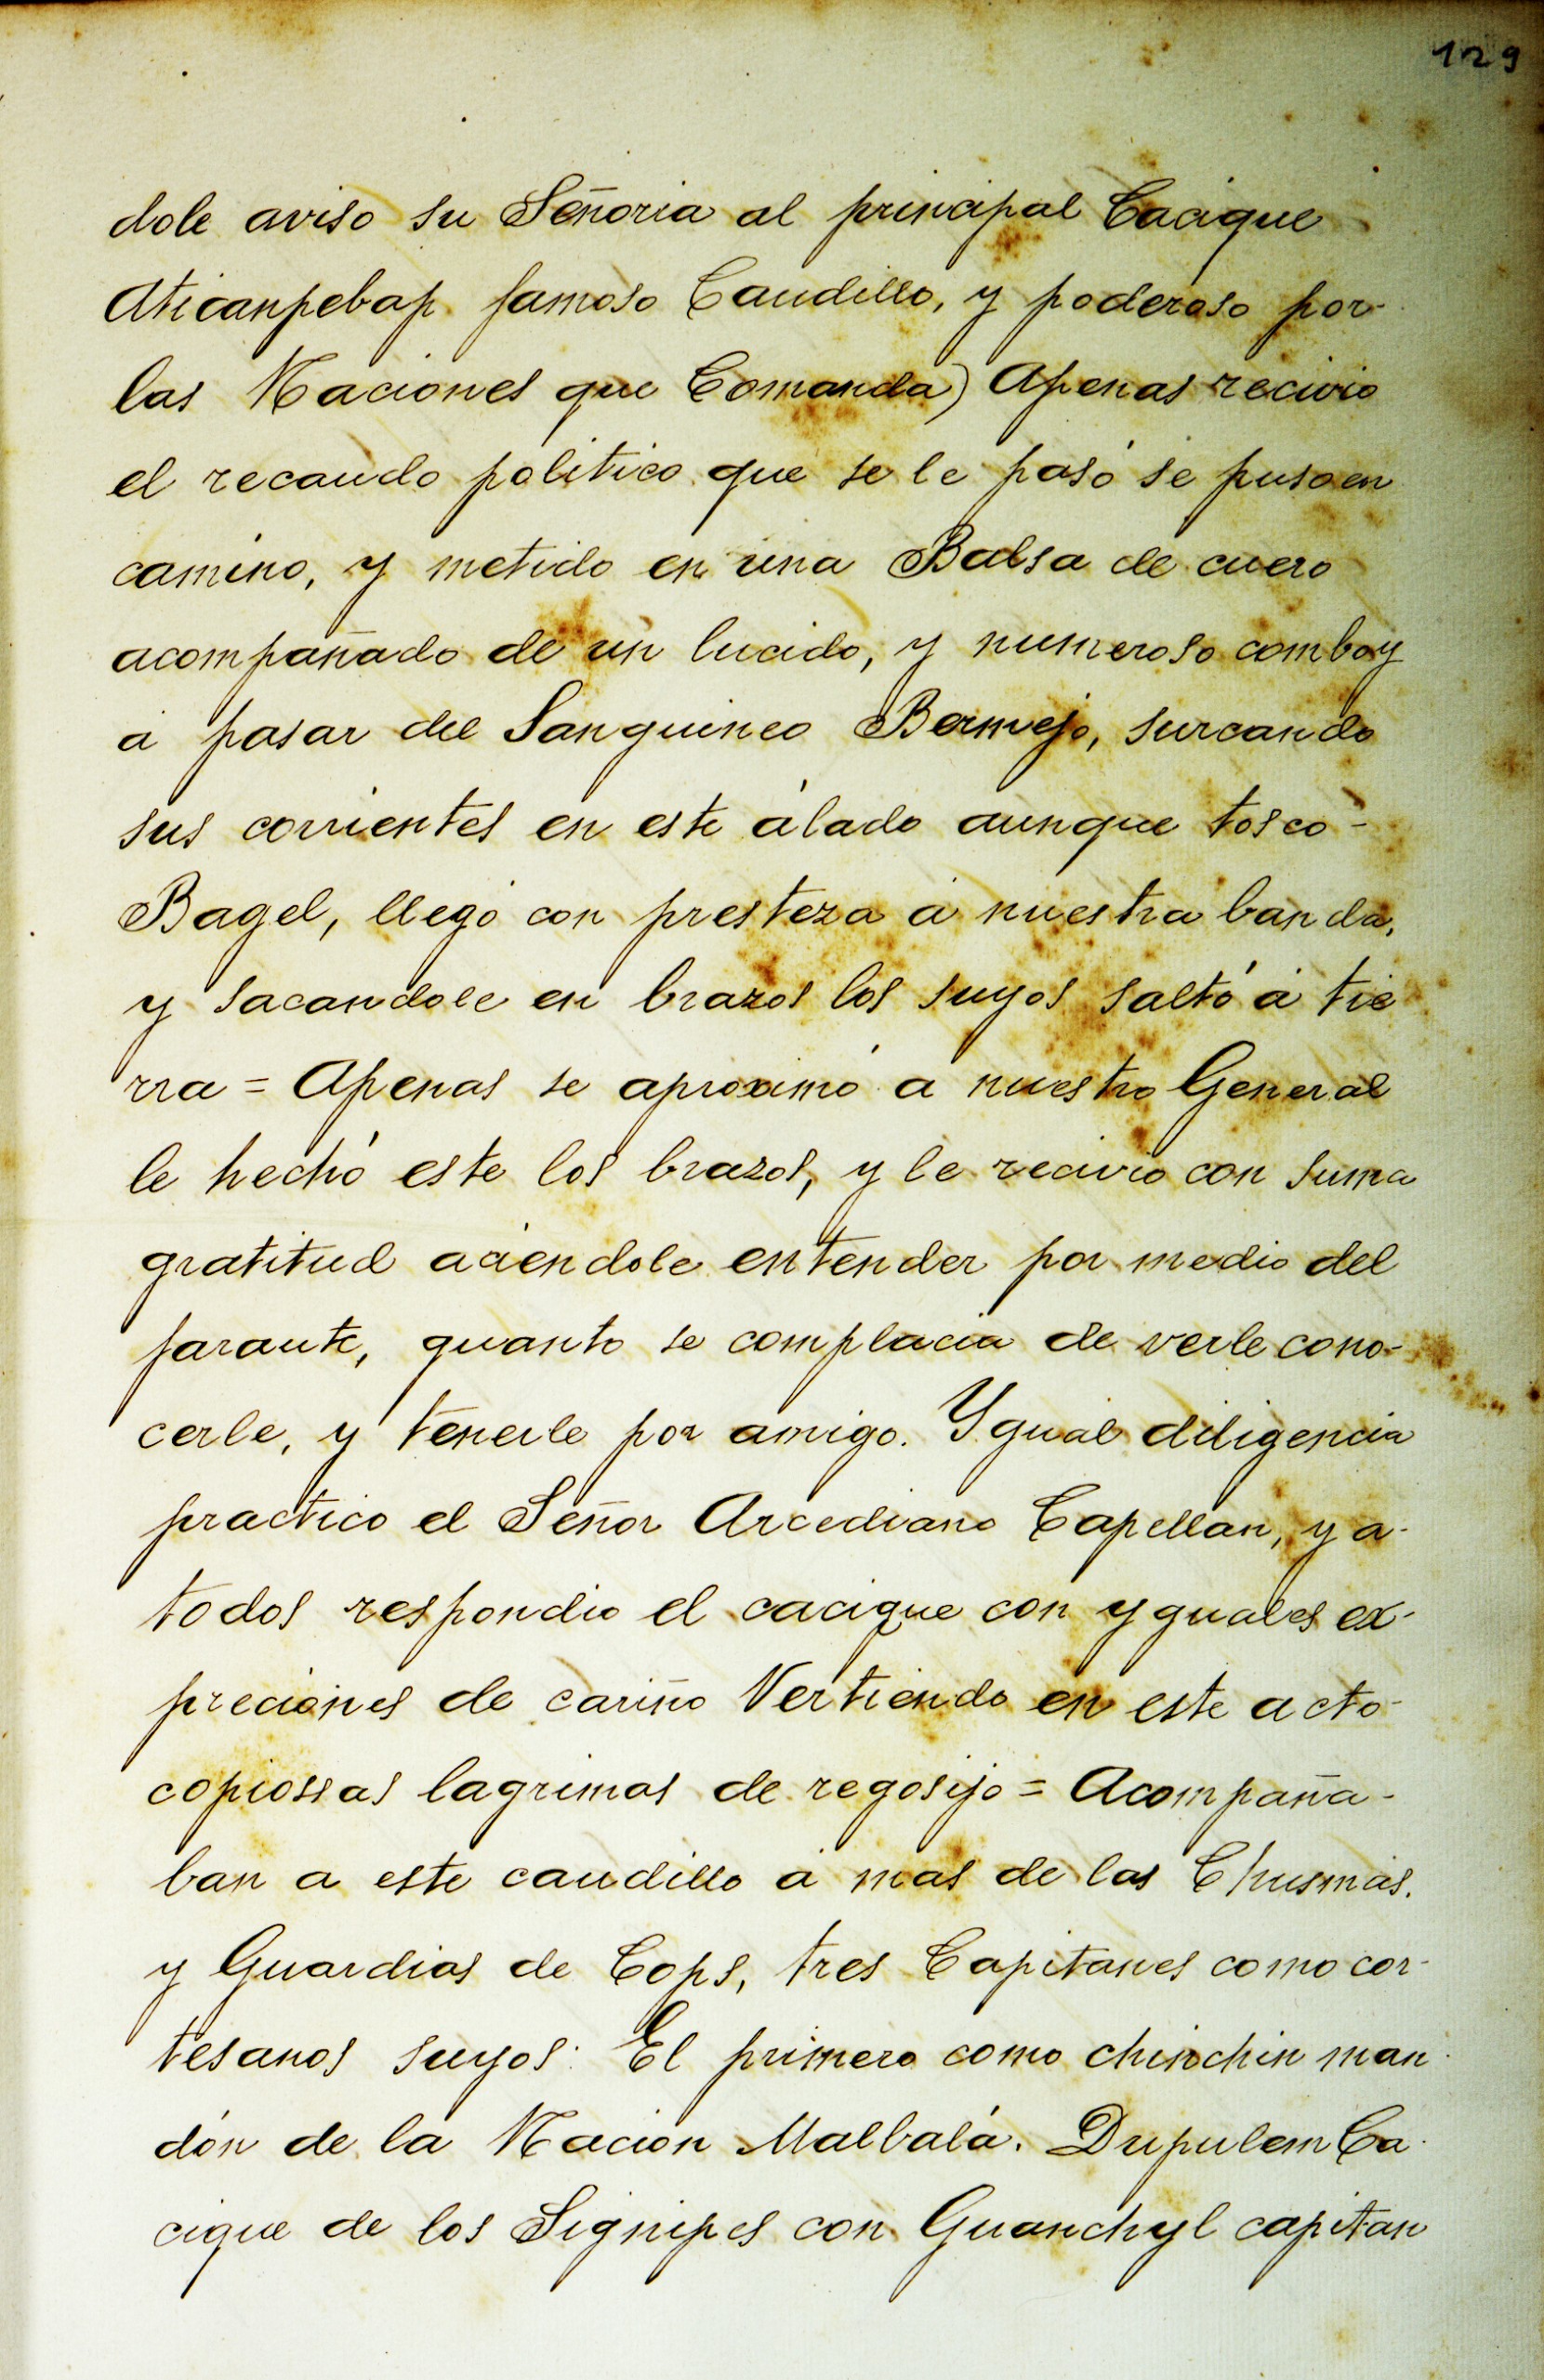 129
dole aviso su Señoria al principal Cacique
Aticanpebap famoso Caudillo, y poderoso por-
las Naciones que Comanda) Apenas recivio
el recaudo politico que se le pasó se puso en
camino, y metido en una Balsa de cuero
acompañado de un lucido, y numeroso comboy
á pasar del Sanguineo Bermejo, surcando
sus corrientes en este álado aunque tosco-
Bagel, llegó con presteza á nuestra banda,
y sacandole en brazos los suyos saltó á tie
rra = Apenas se aproximó a nuestro General
le hechó este los brazos, y le recivio con suma
gratitud aciendole entender por medio del
faraute, quanto se complacia de verle cono-
cerle, y tenerle por amigo. Ygual diligencia
practico el Señor Arcediano Capellan, y a-
todos respondio el cacique con yguales ex-
preciones de cariño Vertiendo en este acto-
copiossas lagrimas de regosijo = Acompaña-
ban a este caudillo á mas de las Chusmas.
y Guardias de Cops, tres Capitanes como cor-
tesanos suyos: El primero como chinchin man-
dón de la Nacion Malbalá. Dupulem Ca-
cique de los Signipes con Guanchyl capitan